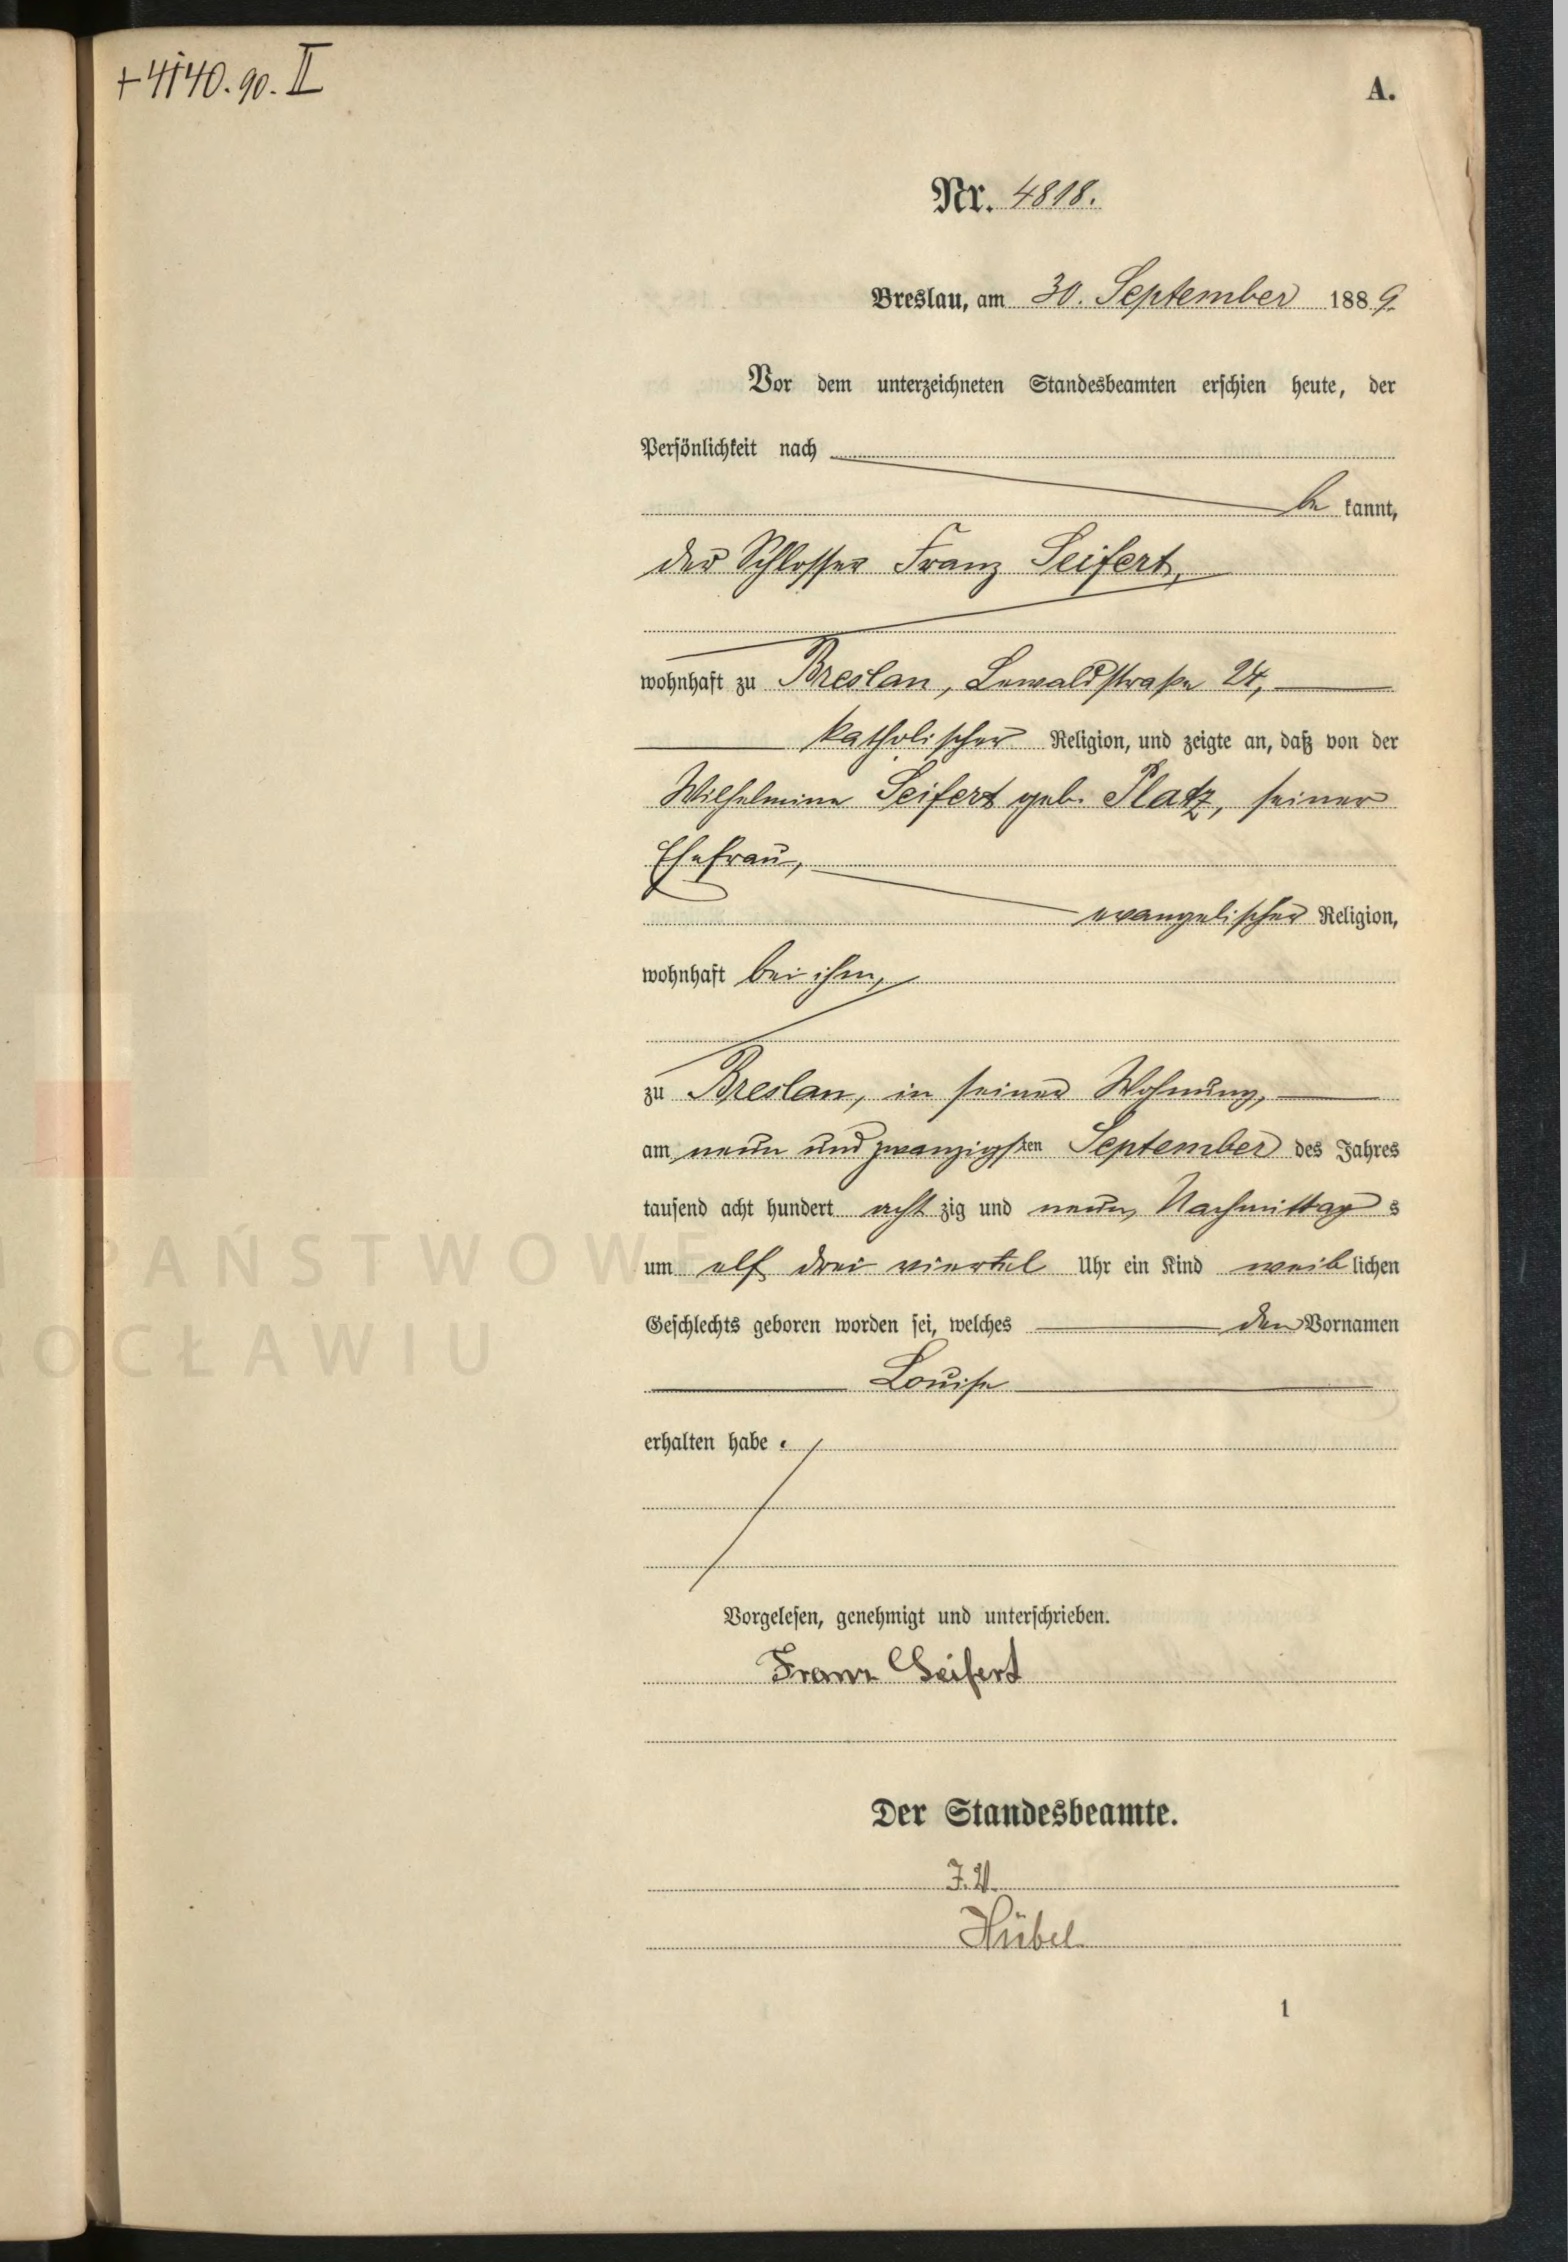 +4140.90. II
A.
Nr. 4818.
Breslau, am 30. September 1889.
Vor dem unterzeichneten Standesbeamten erschien heute, der
Persönlichkeit nach
be kannt,
der Schlosser Franz Seifert,
wohnhaft zu Breslau, Lewaldstraße 24,
katholischer Religion, und zeigte an, daß von der
Wilhelmine Seifert geb. Platz, seiner
Ehefrau,
evangelischer Religion,
wohnhaft bei ihm,
zu Breslau, in seiner Wohnung,
am neun und zwanzigsten September des Jahres
tausend acht hundert acht zig und neun, Nachmittag s
um elf drei viertel Uhr ein Kind weib lichen
Geschlechts geboren worden sei, welches den Vornamen
Louise
erhalten habe.
Vorgelesen, genehmigt und unterschrieben.
Franz Seifert
Der Standesbeamte.
I.V.
Hübel
1
PAŃSTWOWE
OCŁAWIU